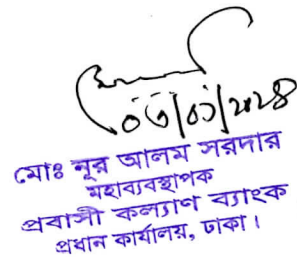 ০৩/০১/২০২৪
মোঃ নূর আলম সরদার
মহাব্যবস্থাপক
প্রবাসী কল্যাণ ব্যাংক
প্রধান কার্যালয়, ঢাকা।